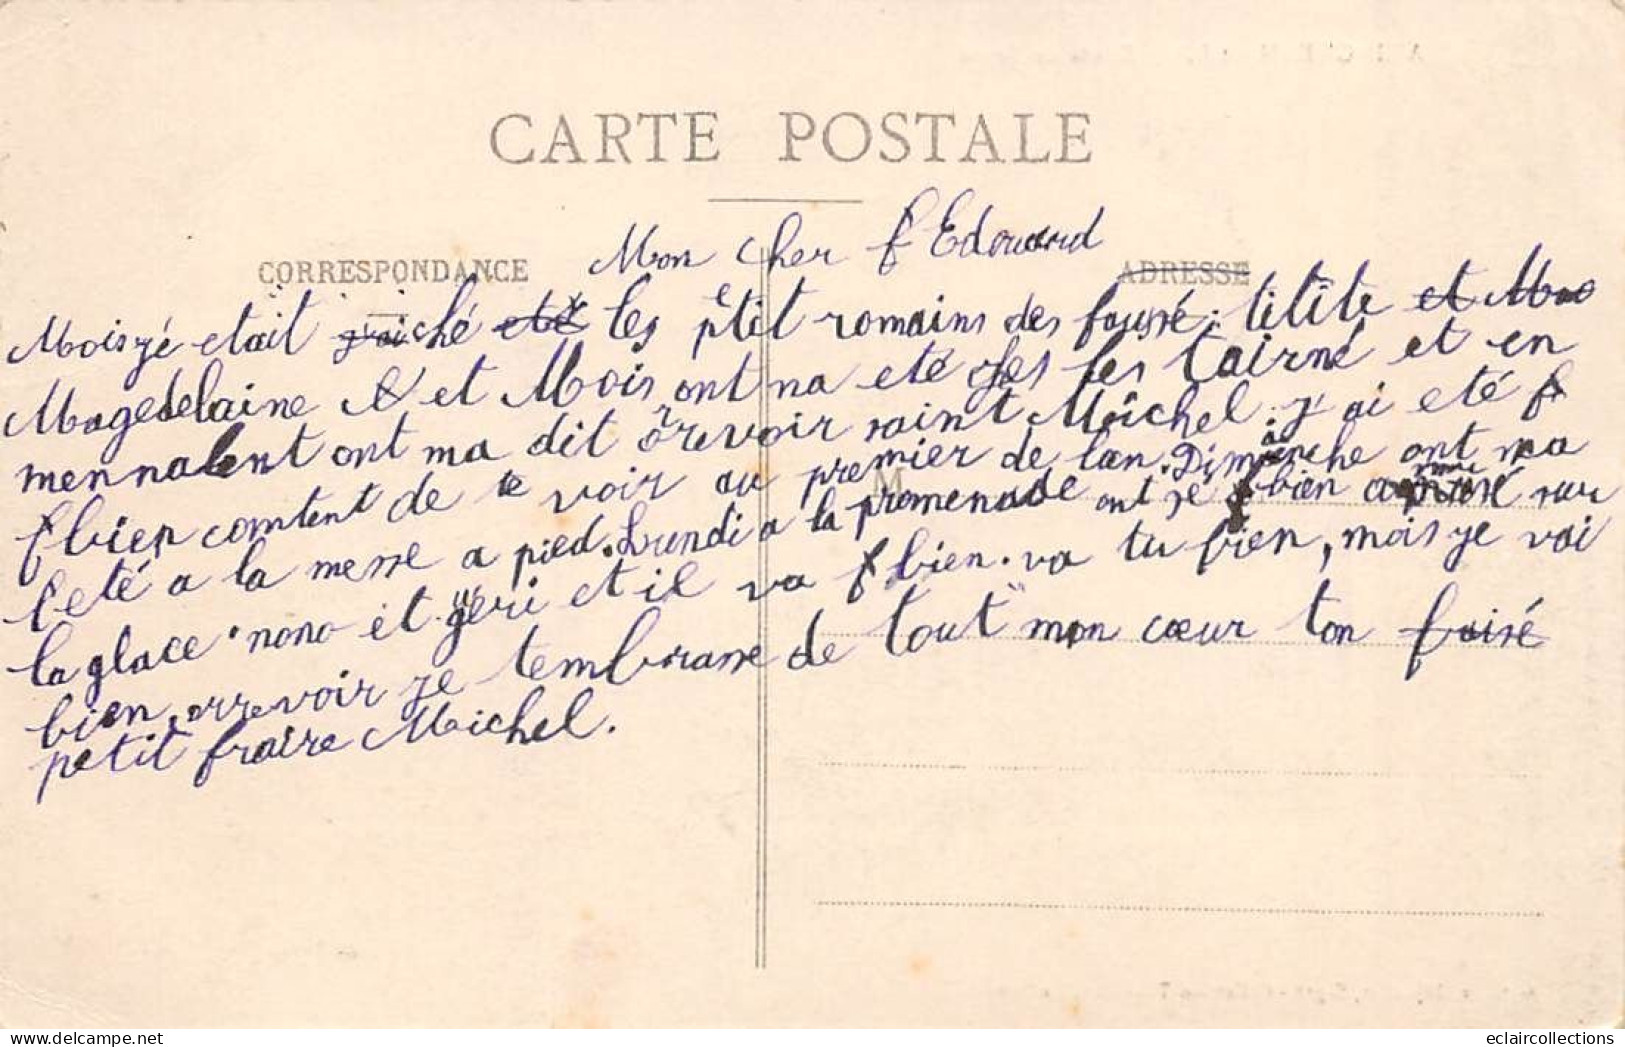 CARTE POSTALE
CORRESPONDANCE
ADRESSE
Mon cher f Edouard
Mois jé etait ché les ptetit romains des foussé. titite
Magedelaine et Mois ont na eté ches les Tairné et en
mennalent ont ma dit orevoir saint Michel. j'ai eté
bien comtent de te voir au premier de lan. Dimanche ont ma
leté a la messe a pied. Lundi a la promenade ont sé bien amusé sur
la glace. nono et geri et il va bien. va tu bien, mois je vai
bien, orrevoir je tembrasse de tout mon cœur ton
petit fraire Michel.
M
eclaircollections